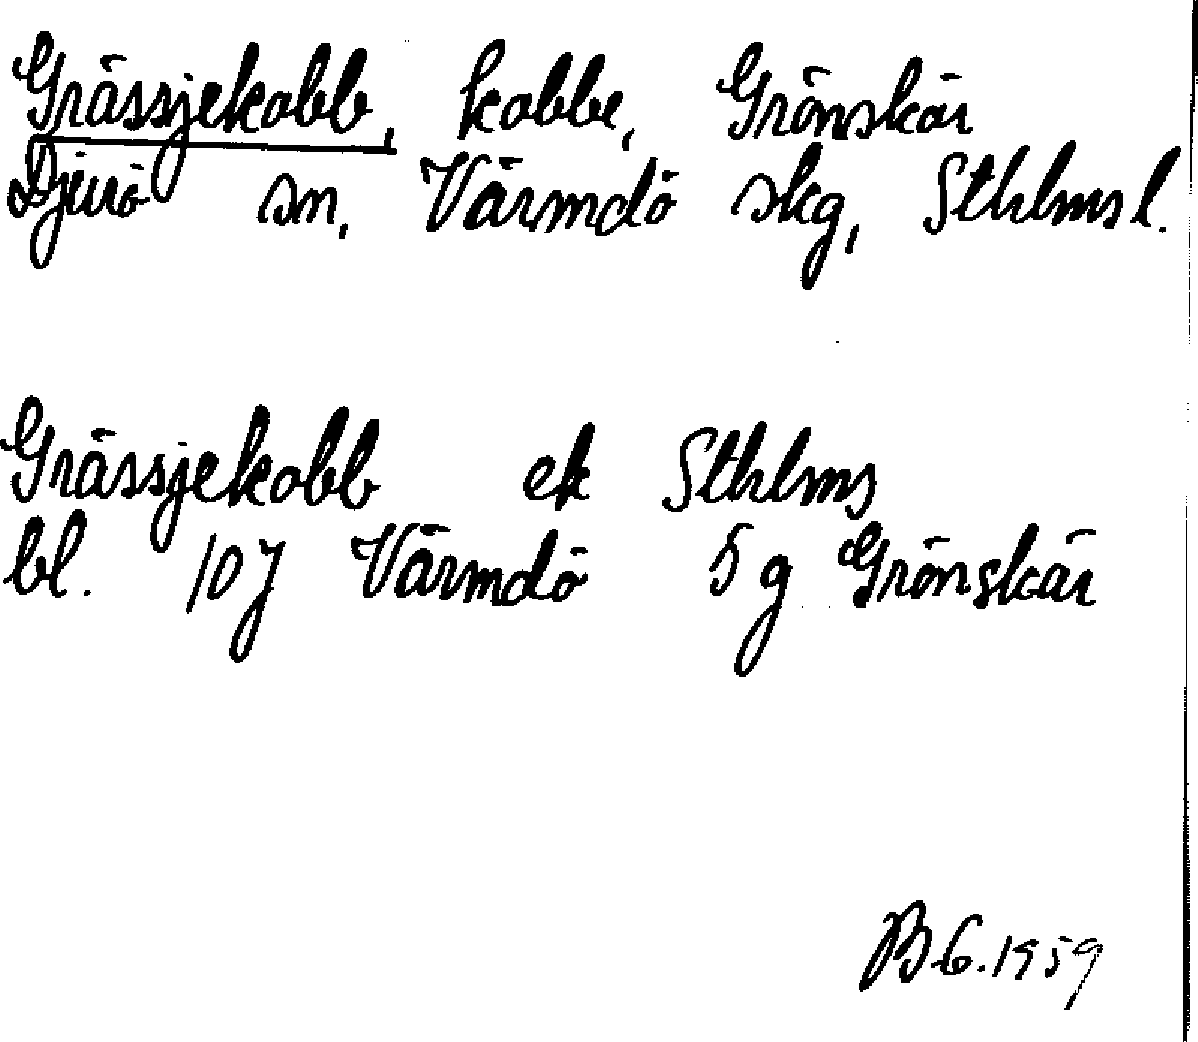 Grässjekobb, kobbe, Grönskär
Djurö sn, Värmdö skg, Sthlms l.
Grässjekobb ek Sthlms
bl. 10J Värmdö 5 g Grönskär
BG. 1959